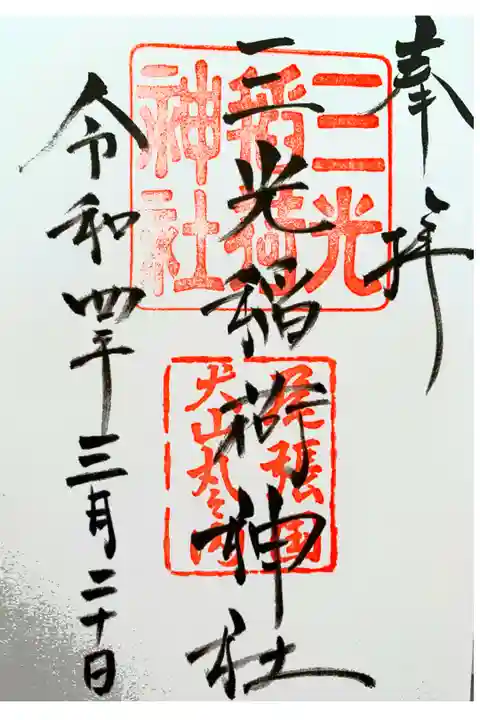 奉拝
三光稲荷神社
三光
稲荷
神社
尾張国
犬山丸之内
令和四年三月二十日